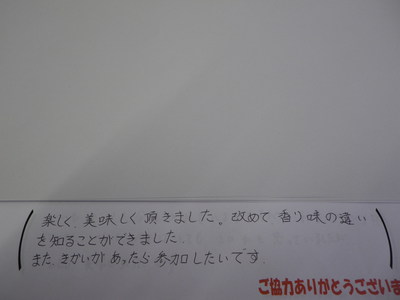 楽しく、美味しく頂きました。改めて香り味の違い
を知ることができました
また、きかいがあったら参加したいです。
ご協力ありがとうございま